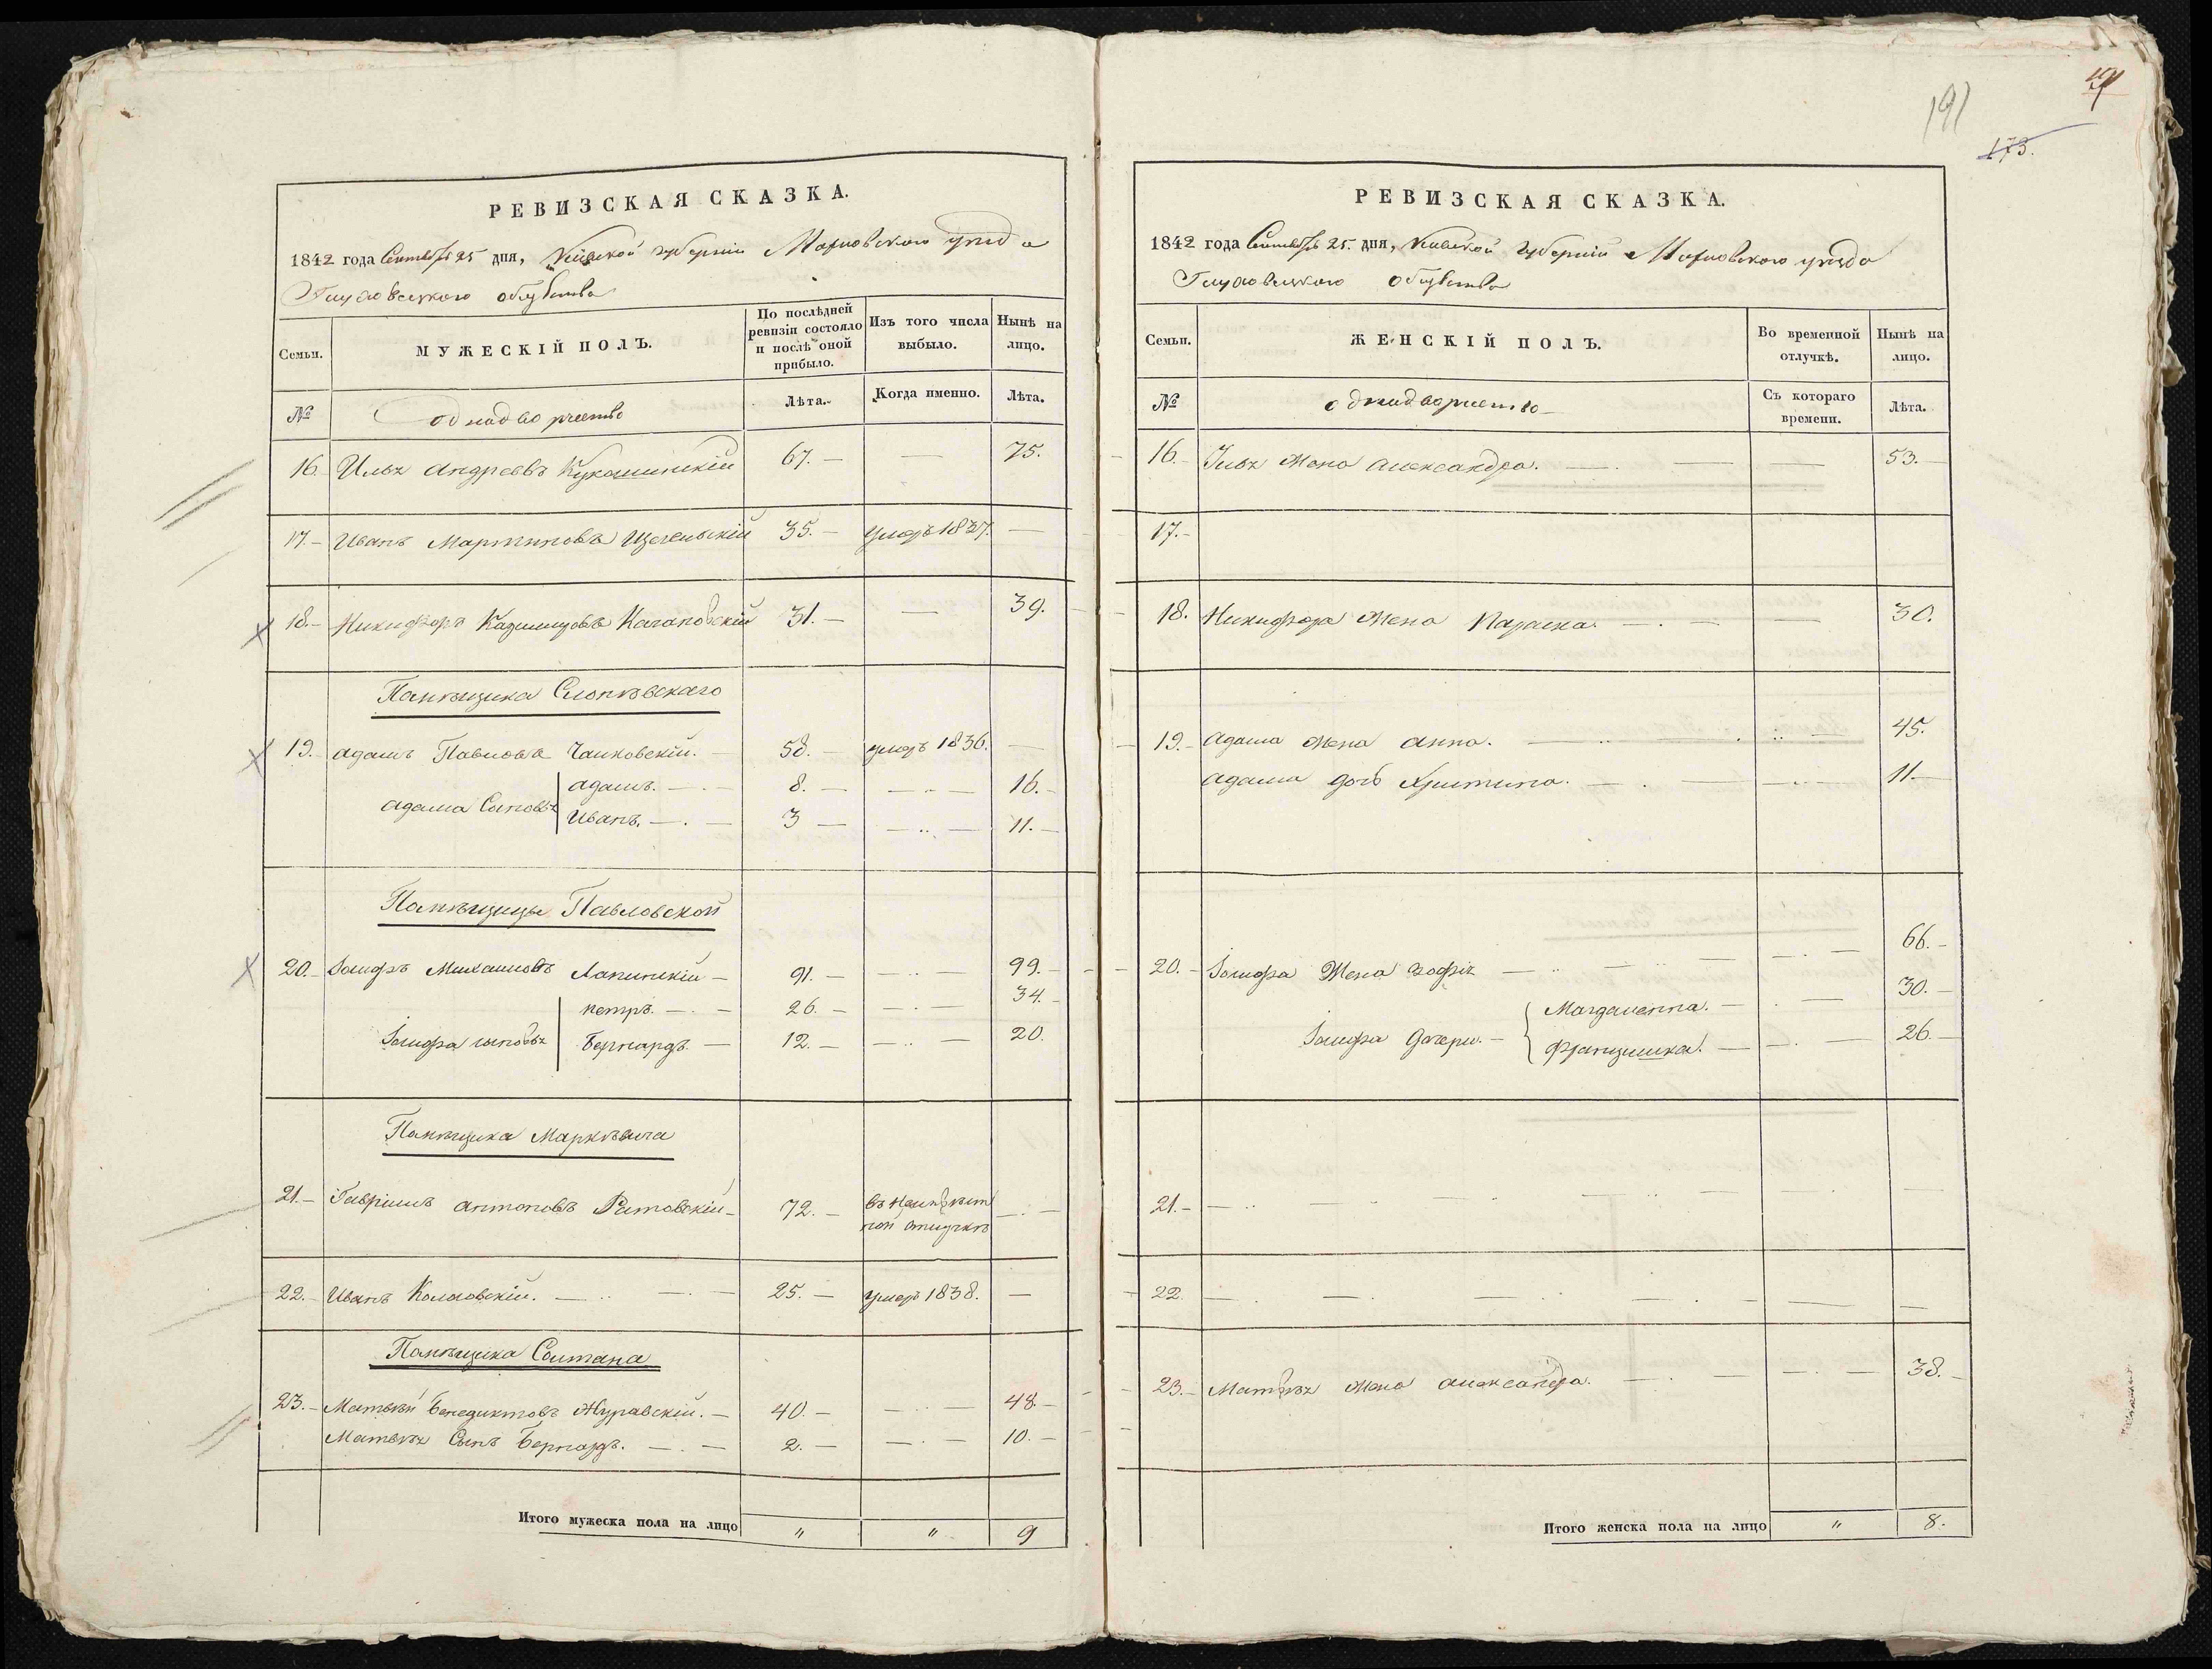 191
191
173.
РЕВИЗСКАЯ СКАЗКА.
1842 года Сентября 25 дня, Кіевской губерніи Махновского уезда
общества
Семьи.
МУЖЕСКІЙ ПОЛЪ.
По послѣдней ревизіи состояло и послѣ оной прибыло.
Изъ того числа выбыло.
Нынѣ на лицо.
№
однадворчество
Лѣта.
Когда именно.
Лѣта.
16. Илья Андреевъ 67. — — 75.
17. Иванъ Мартиновъ 35. — умеръ 1837. —
18. Никифоръ Казимировъ Качановскій 31. — — 39.
Памѣщика
19. Адамъ Павловъ Чайковскій. — 58. — умеръ 1836. —
Адама Сыновья
Адамъ. — 8. — — 16. —
Иванъ. — 3 — — 11. —
Памѣщицы Павловской
20. Іосифъ Михайловъ Лапинскій — 91. — — 99. —
Іосифа сыновья
петръ. — 26. — — 34. —
Бернардъ. — 12. — — 20.
Памѣщика Маркѣвича
21. — Гавріилъ Антоновъ 72. —
въ
ной отлучкѣ
22. — Иванъ 25. — умеръ 1838. —
Памѣщика Солтана
23. — Матвѣй Бенедиктовъ Журавскій. — 40. — — 48. —
Матвѣя Сынъ Бернардъ. — 2. — — 10. —
Итого мужеска пола на лицо " " 9
РЕВИЗСКАЯ СКАЗКА.
1842 года Сентября 25. дня, Кіевской губерніи Махновского уезда
общества
Семьи.
ЖЕНСКІЙ ПОЛЪ.
Во временной отлучкѣ.
Нынѣ на лицо.
№
однадворчество
Съ котораго времени.
Лѣта.
16. Ильи Жена Александра. — — 53.
17. —
18. Никифора Жена Параска. — — 30.
19. — Адама Жена Анна. — — 45.
Адама дочь Христина. — — 11. —
20. — Іосифа Жена Зофія — — 66. —
Іосифа Дочери. —
Магдаленна. — — 30. —
Францишка. — — 26 —
21. — —
22. —
23. — Матвѣя Жена Александра. — — 38. —
Итого женска пола на лицо " 8.